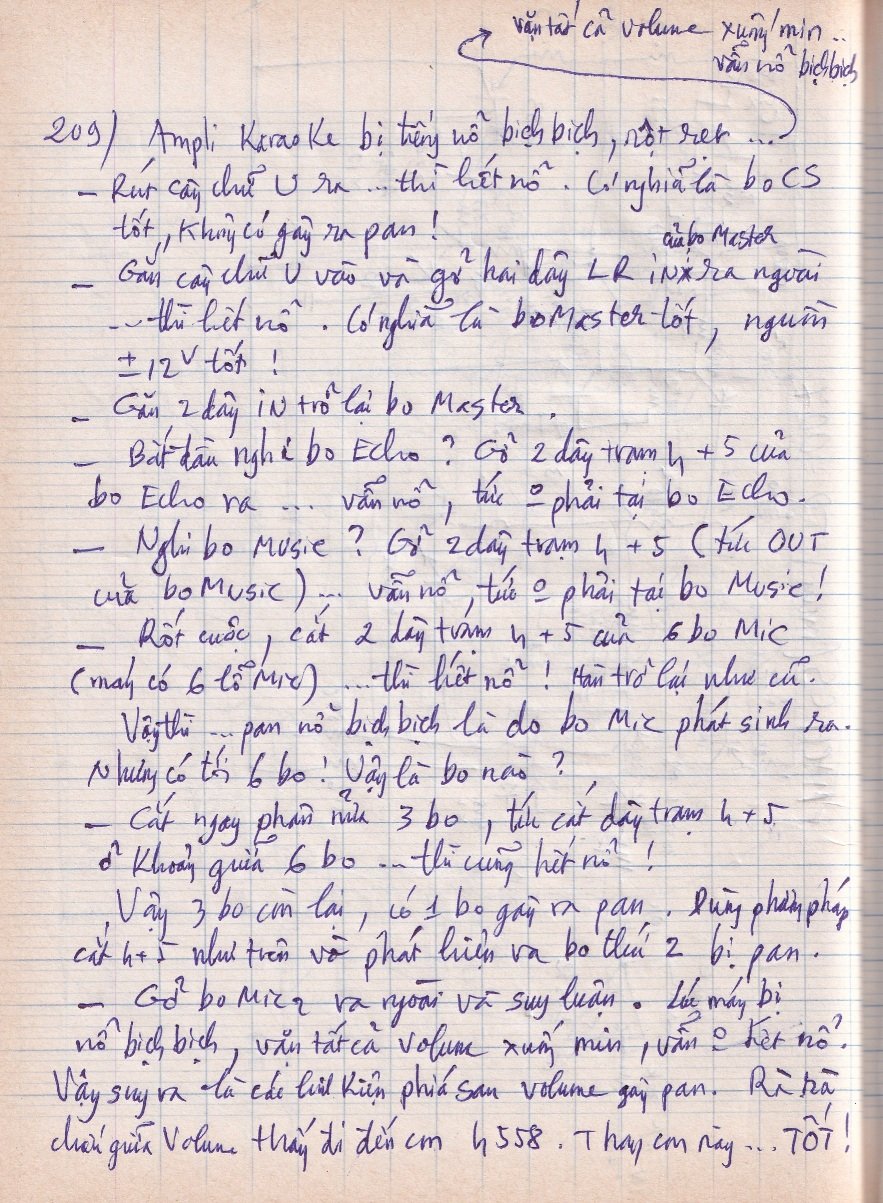 vặn tất cả volume xuống min ..
vẫn nổ bịch bịch
209) Ampli KaraoKe bị tiếng nổ bịch bịch, rột rẹt ...
- Rút cây chữ U ra ... thì hết nổ. Có nghĩa là bo CS
tốt, không có gây ra pan !
của bo Master
- Gắn cây chữ U vào và gở hai dây LR iN ra ngoài
... thì hết nổ. Có nghĩa là bo Master tốt, nguồn
± 12V tốt !
- Gắn 2 dây iN trở lại bo Master.
- Bắt đầu nghi bo Echo ? Gở 2 dây trạm 4 + 5 của
bo Echo ra ... vẫn nổ, tức o phải tại bo Echo.
- Nghi bo Music ? Gở 2 dây trạm 4 + 5 (tức OUT
của bo Music) ... vẫn nổ, tức o phải tại bo Music !
- Rốt cuộc, cắt 2 dây trạm 4 + 5 của 6 bo Mic
(máy có 6 lổ Mic) ... thì hết nổ ! Hàn trở lại như cũ.
Vậy thì ... pan nổ bịch bịch là do bo Mic phát sinh ra.
Nhưng có tới 6 bo ! Vậy là bo nào ?
- Cắt ngay phân nửa 3 bo, tức cắt dây trạm 4 + 5
ở khoảng giữa 6 bo ... thì cũng hết nổ !
Vậy 3 bo còn lại, có 1 bo gây ra pan. Dùng phương pháp
cắt 4 + 5 như trên và phát hiện ra bo thứ 2 bị pan.
- Gở bo Mic 2 ra ngoài và suy luận. Lúc máy bị
nổ bịch bịch, vặn tất cả volume xuống min, vẫn o hết nổ.
Vậy suy ra là các linh kiện phía sau volume gây pan. Rà từ
chân giữa Volume thấy đi đến con 4558. Thay con này ... TỐT !